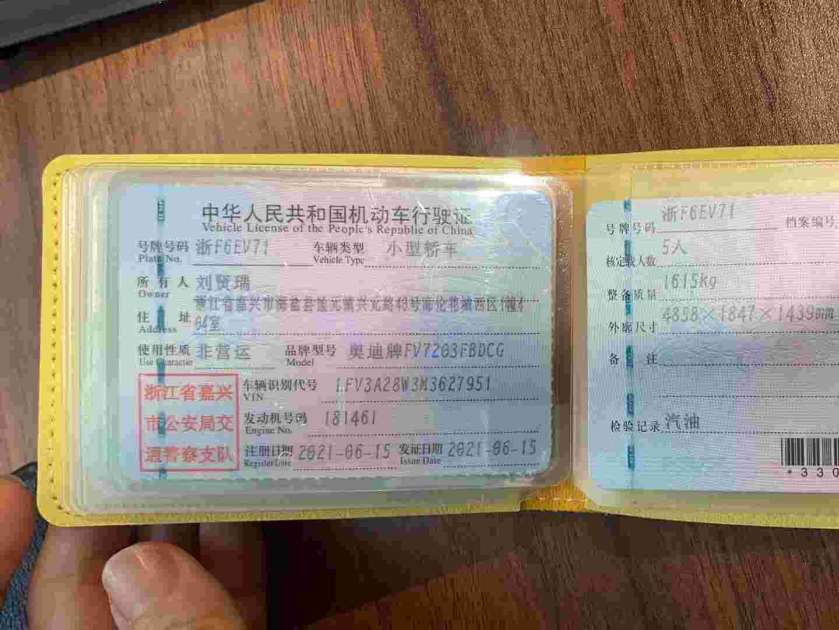 中华人民共和国机动车行驶证
Vehicle License of the People's Republic of China
号牌号码 浙F6EV71 车辆类型 小型轿车
Plate No. Vehicle Type
所有人 刘贤瑞
Owner
浙江省嘉兴市海盐县武原镇兴元路48号海伦花城西区1幢4
住址 04室
Address
使用性质 非营运 品牌型号 奥迪牌FV7203FBDCG
Use Character Model
浙江省嘉兴
市公安局交
通警察支队
车辆识别代号 LFV3A28W3M3627951
VIN
发动机号码 181461
Engine No.
注册日期 2021-06-15 发证日期 2021-06-15
Register Date Issue Date
号牌号码 浙F6EV71 档案编号
核定载人数 5人
整备质量 1615kg
外廓尺寸 4858×1847×1439
备注
检验记录 汽油
*330